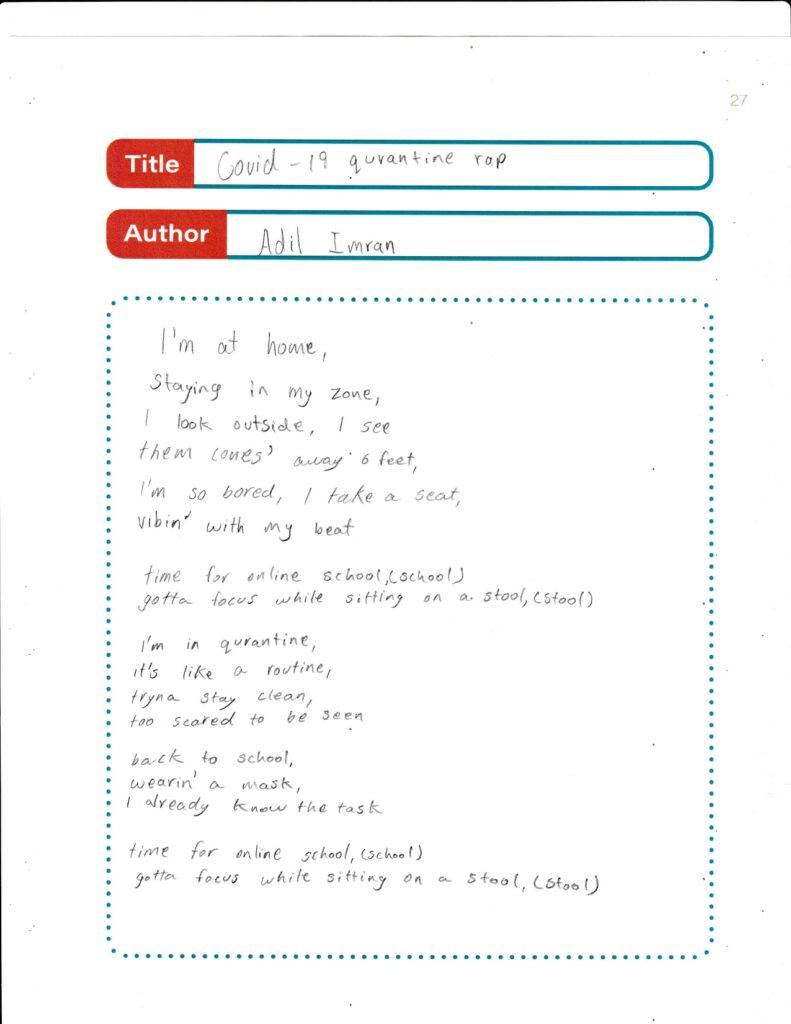 27
Title Covid-19 qurantine rap
Author Adil Imran
I'm at home,
Staying in my zone,
I look outside, I see
them cones' away 6 feet,
I'm so bored, I take a seat,
vibin' with my beat
time for online school,(school)
gotta focus while sitting on a stool,(stool)
I'm in qurantine,
it's like a routine,
tryna stay clean,
too scared to be seen
back to school,
wearin' a mask,
I already know the task
time for online school,(school)
gotta focus while sitting on a stool,(stool)